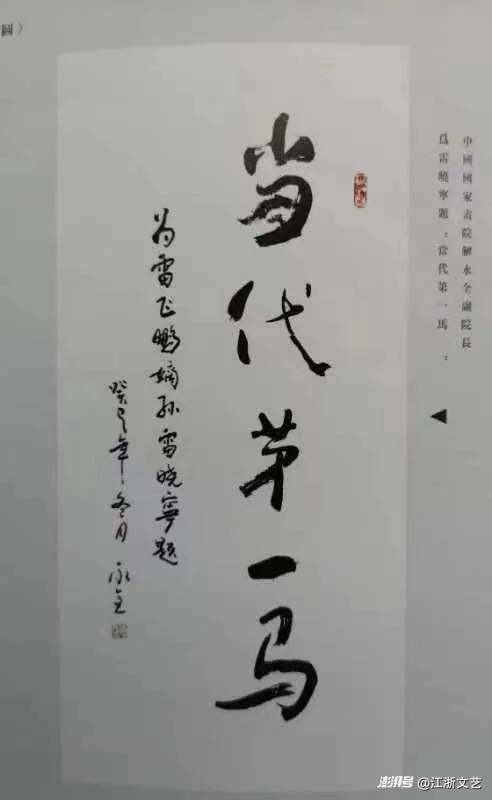 圖〉
中國國家畫院解永全副院長
爲雷曉寧題：當代第一馬：
當代第一马
为雷飞鹏嫡孙雷晓寧题
癸巳年冬月 永全
澎湃号@江浙文艺